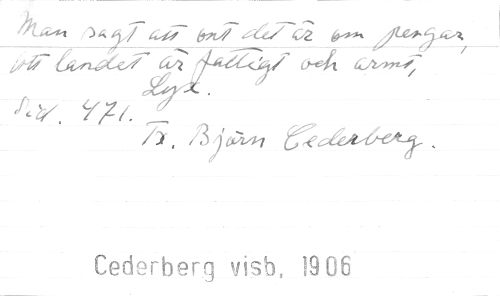 Man sagt att ont det är om pengar,
ott landet är fattigt och armt,
Lyx.
Sid. 471.
Tx. Björn Cederberg.
Cederberg visb. 1906